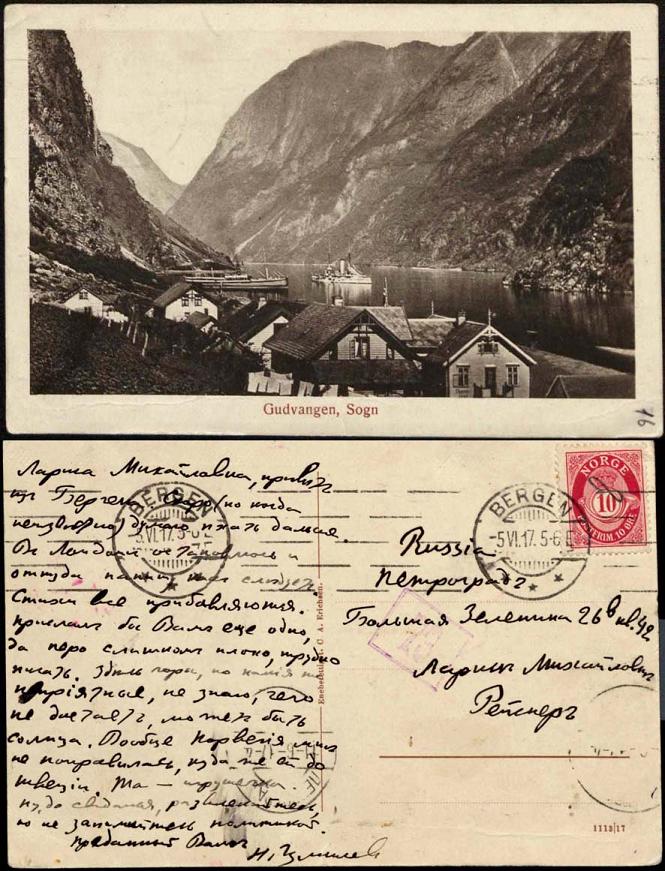 Gudvangen, Sogn
16
Лариса Михайловна, привѣтъ
изъ Бергена. Скоро (но когда
неизвѣстно) думаю ѣхать дальше.
Въ Лондонѣ остановлюсь и
оттуда напишу какъ слѣдуетъ.
Стихи все прибавляются.
Прислалъ бы Вамъ еще одно,
да перо слишкомъ плохо, трудно
писать. Здѣсь горы, но какія то
непріятныя, не знаю, чего
не достаетъ, можетъ быть
солнца. Вообще Норвегія мнѣ
не понравилась, куда же ей до
Швеціи. Та — игрушечка.
Ну, до свиданья, развлекайтесь,
но не занимайтесь политикой.
Преданный Вамъ
Н. Гумилевъ
Eneberettiget C. A. Erichsen
BERGEN
-5 VI.17. 5-6 E
BERGEN
-5 VI.17. 5-6 E
NORGE
10
POSTFRIM. 10 ØRE
Russia
Петроградъ
Большая Зеленина 26 в кв. 42
Ларисѣ Михайловнѣ
Рейснеръ
1113|17